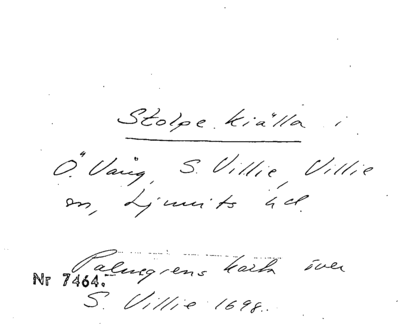 Stolpe Kiälla i
Ö. Vång, S. Villie, Villie
sn, Ljunits hd.
Palmgrens karta över
Nr 7464.
S. Villie 1698.